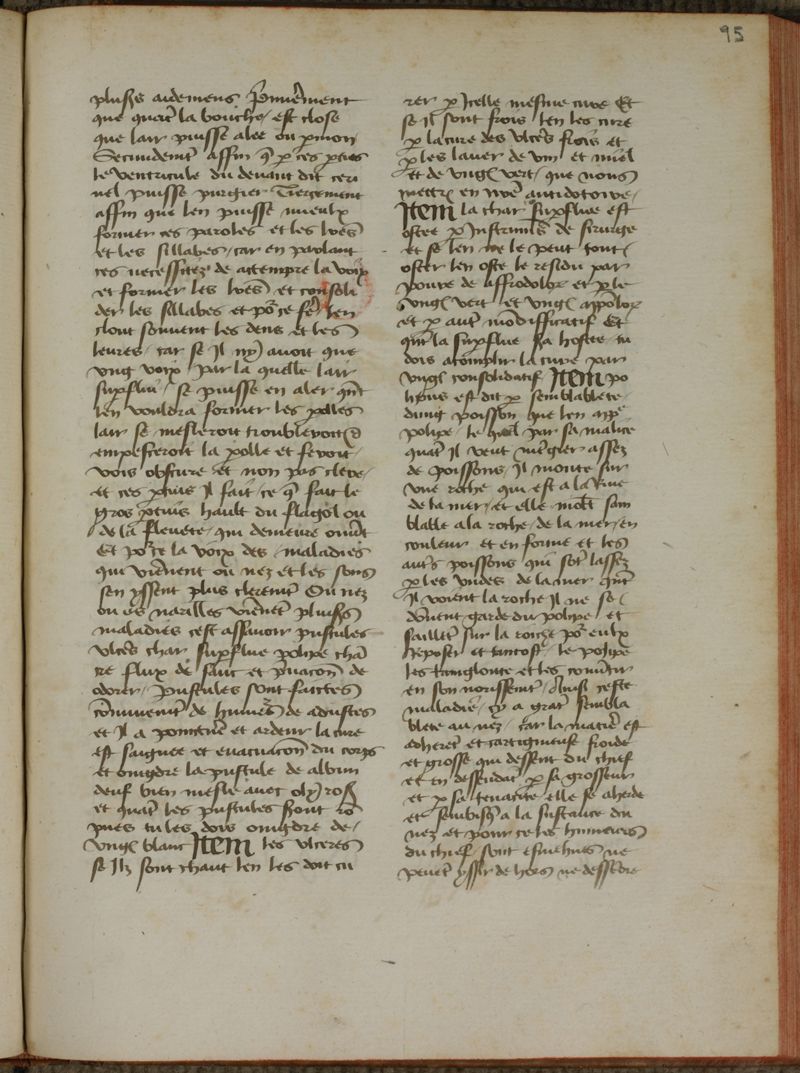 95
plus̃s aidemens p̃mierement
que quãt la bouche est close
que lair puisse alee ou pmon
Secundemẽt affin q̃ p ces ptius
le ventricule du devant dit cer
vel puisse purgier Tiercement
affin que len puisse mieulx
former ces paroles et les lrẽs
et les sillabes car en parlant
ces necessitez de attempre la voix
et former les lrẽs et consoli
der les sillabes et põ ce len
clout souvent les dens et les
leures car se il ny avoit que
ung voix par la quelle lair
supflu se puisse en aler qñt
len vouldra former les polles
lair se mesleroit troubleroit
empescheroit la polle et feroit
vois obscure et non pas clere
et ces ptius il fait ce q̃ fait le
gros ptuis hault du flagol ou
de la fleuete qui demeure ouvt
Et põ ce la voix des maladies
qui viẽnent ou nez et les sons
sen yssent plus cleremẽt Ou nez
ou es narilles viẽnẽt plus̃s
maladies cest assavoir pustules
ulcẽs char supflue polipe chã
cre flux de sanc et pvacoñ de
odorer pustules sont faictes
cõmunemẽt de humeurs adustes
et il a pointure et ardeur la cure
est saignee et evacuacoñ du corps
et oingdre la pustule de album
deuf bien mesle avec oly ros
et quãt les pustules sont rõ
pues tu les dois oingdre de
ungt blanc Item les ulceres
se ilz sont chaut len les doit cu
rer p icelle mesme cure Et
se il sont frois len les cure
p la cure des ulcẽs frois et
p les laver de vin et miel
et de ungt vert que nous
mettrõ en nrẽ antidotoire
Item la char supflue est
ostee p instrumẽs de sirurge
et se len ne le peut tout
oster len oste le residu par
poure de affrodolor et p le
ungt vert et ungt appõlor
et p aut̃ mõdifficatif Et
qñt la supflue sa hostee tu
dois acomplir la cure par
ungt consolidatif Item po
lipus est dit p semblablete
dung poisson que len app̃
polipe le quel par sa malice
quãt il veut mẽgier assez
de poissons il monte sur
une roche qui est a la rive
de la mer et elle mõlt sam
blable a la roche de la mer en
couleur et en forme et les
aut̃s poissons qui sõt lassez
p les undes de la mer qñt
il voient la roche il ne se
dõnent garde du polipe et
saillẽt sur la roiche põ eulx
reposer et tantost le polipe
les tranglonte et les cõvertir
en son norissemẽt Ainsi ceste
maladie cy a grãt sembla
blete au nez car la matiẽ est
adherẽt et cartigineuse froide
et grosse qui dessent du chief
et en dessendãt p sa grosseur
et p sa tenacite elle se aherde
et sa la sustance du
nez et pour ce les humeurs
du chief sont esmehues ne
peuẽt yssir de hors ne dessẽdre